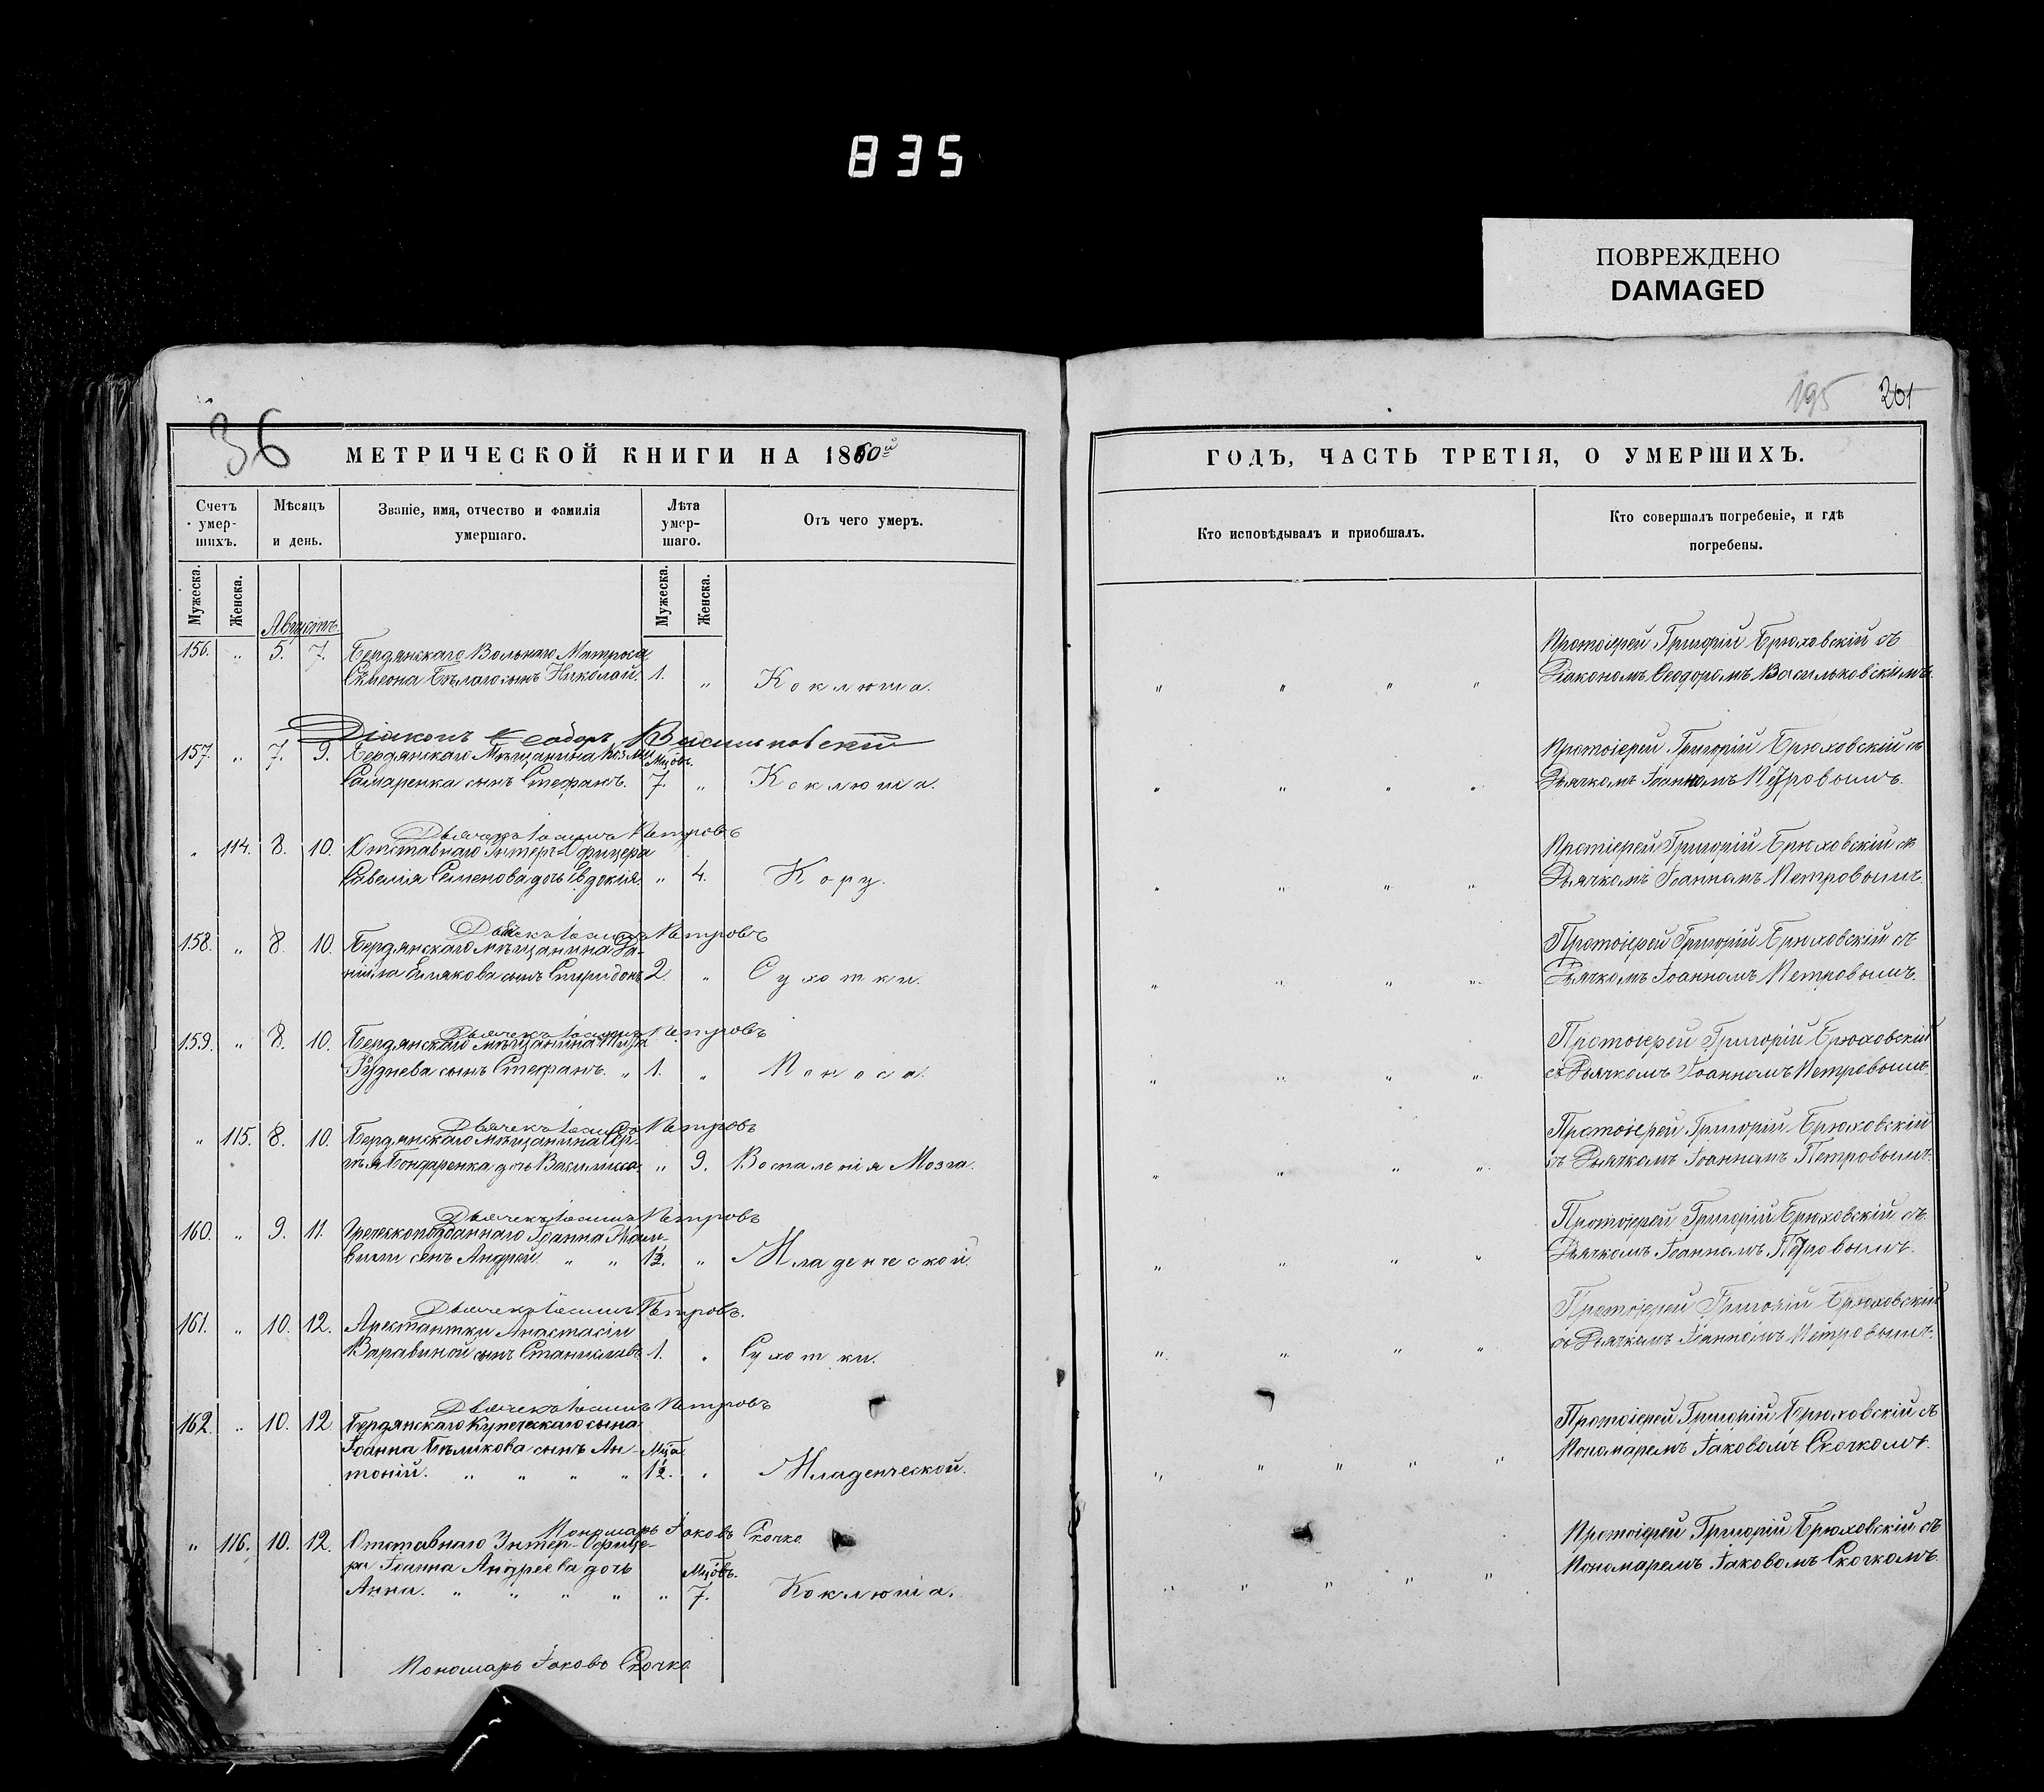 835
ПОВРЕЖДЕНО
DAMAGED
195 201
36
МЕТРИЧЕСКОЙ КНИГИ НА 1860й
ГОДЪ, ЧАСТЬ ТРЕТІЯ, О УМЕРШИХЪ.
Счетъ умер-шихъ.
Мѣсяцъ и день.
Званіе, имя, отчество и фамилія умершаго.
Лѣта умер-шаго.
Отъ чего умеръ.
Кто исповѣдывалъ и пріобщалъ.
Кто совершалъ погребеніе, и гдѣ погребены.
Мужеска. Женска. Мужеска. Женска.
Августъ.
156. " 5. 7. Бердянскаго Вольнаго Матроса
Симеона Бѣлаго сынъ Николай. 1. " Коклюша. " " " "
Протоіерей Григорій Брюховскій съ
Діакономъ Ѳеодоромъ Васильковскимъ.
Діаконъ Ѳеодоръ Васильковскій
157. " 7. 9. Бердянскаго Мѣщанина Козмы Мцовъ.
Самаренка сынъ Стефанъ. 7. " Коклюша. " " " "
Протоіерей Григорій Брюховскій съ
Дьячкомъ Іоанномъ Петровымъ.
Дьячекъ Іоаннъ Петровъ
" 114. 8. 10. Отставнаго Унтеръ-Офицера
Савелія Семенова дочь Евдокія. " 4. Корy. " " " "
Протоіерей Григорій Брюховскій съ
Дьячкомъ Іоанномъ Петровымъ.
Дьячекъ Іоаннъ Петровъ
158. " 8. 10. Бердянскаго мѣщанина Да-
ніила сынъ Спиридонъ 2. " Сухотки. " " " "
Протоіерей Григорій Брюховскій съ
Дьячкомъ Іоанномъ Петровымъ.
Дьячекъ Іоаннъ Петровъ
159. " 8. 10. Бердянскаго мѣщанина
Руднева сынъ Стефанъ. " 1. " Поноса. " " " "
Протоіерей Григорій Брюховскій
съ Дьячкомъ Іоанномъ Петровымъ.
Дьячекъ Іоаннъ Петровъ
" 115. 8. 10. Бердянскаго мѣщанина
Бондаренка дочь Василиса " 9. Воспаленія Мозга. " " " "
Протоіерей Григорій Брюховскій
съ Дьячкомъ Іоанномъ Петровымъ.
Дьячекъ Іоаннъ Петровъ
160. " 9. 11. Греческоподданнаго Іоанна
сынъ Андрей. " " 1½. " Младенческой. " " " "
Протоіерей Григорій Брюховскій съ
Дьячкомъ Іоанномъ Петровымъ.
Дьячекъ Іоаннъ Петровъ.
161. " 10. 12. Арестантки Анастасіи
Варавиной сынъ Станиславъ 1. " Сухотки. " " " "
Протоіерей Григорій Брюховскій
съ Дьячкомъ Іоанномъ Петровымъ.
Дьячекъ Іоаннъ Петровъ
162. " 10. 12 Бердянскаго Купеческаго сына
Іоанна Бѣликова сынъ Ан- Мца
тоній. " " " " 1½. " Младенческой. " " " " "
Протоіерей Григорій Брюховскій съ
Пономаремъ Іаковомъ Скочкомъ.
Пономарь Іаковъ Скочко
" 116. 10. 12. Отставнаго Унтер-Офице-
ра Іоанна Андреева дочь Мцовъ.
Анна. " " " " " 7. Коклюша. " " " " "
Протоіерей Григорій Брюховскій съ
Пономаремъ Іаковомъ Скочкомъ.
Пономарь Іаковъ Скочко